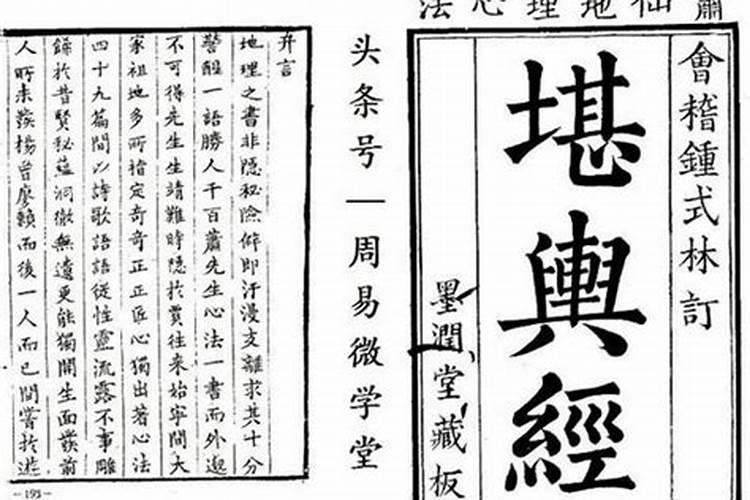 蕭仙地理心法
會稽鍾式林訂
堪輿經
墨潤堂藏板
头条号—周易微学堂
弁言
地理之書非隱秘險僻即汗漫支離求其十分
警醒一語勝人千百蕭先生心法一書而外邈
不可得先生生靖難時隱於賈往來始寧間大
家祖地多所指定奇奇正正匠心獨出著心法
四十九篇間以詩歌語語從性靈流露不事雕
飾於昔賢秘蘊洞徹無遺更能獨開生面發前
人所未發楊曾廖賴而後一人而已間嘗於遊
-193-